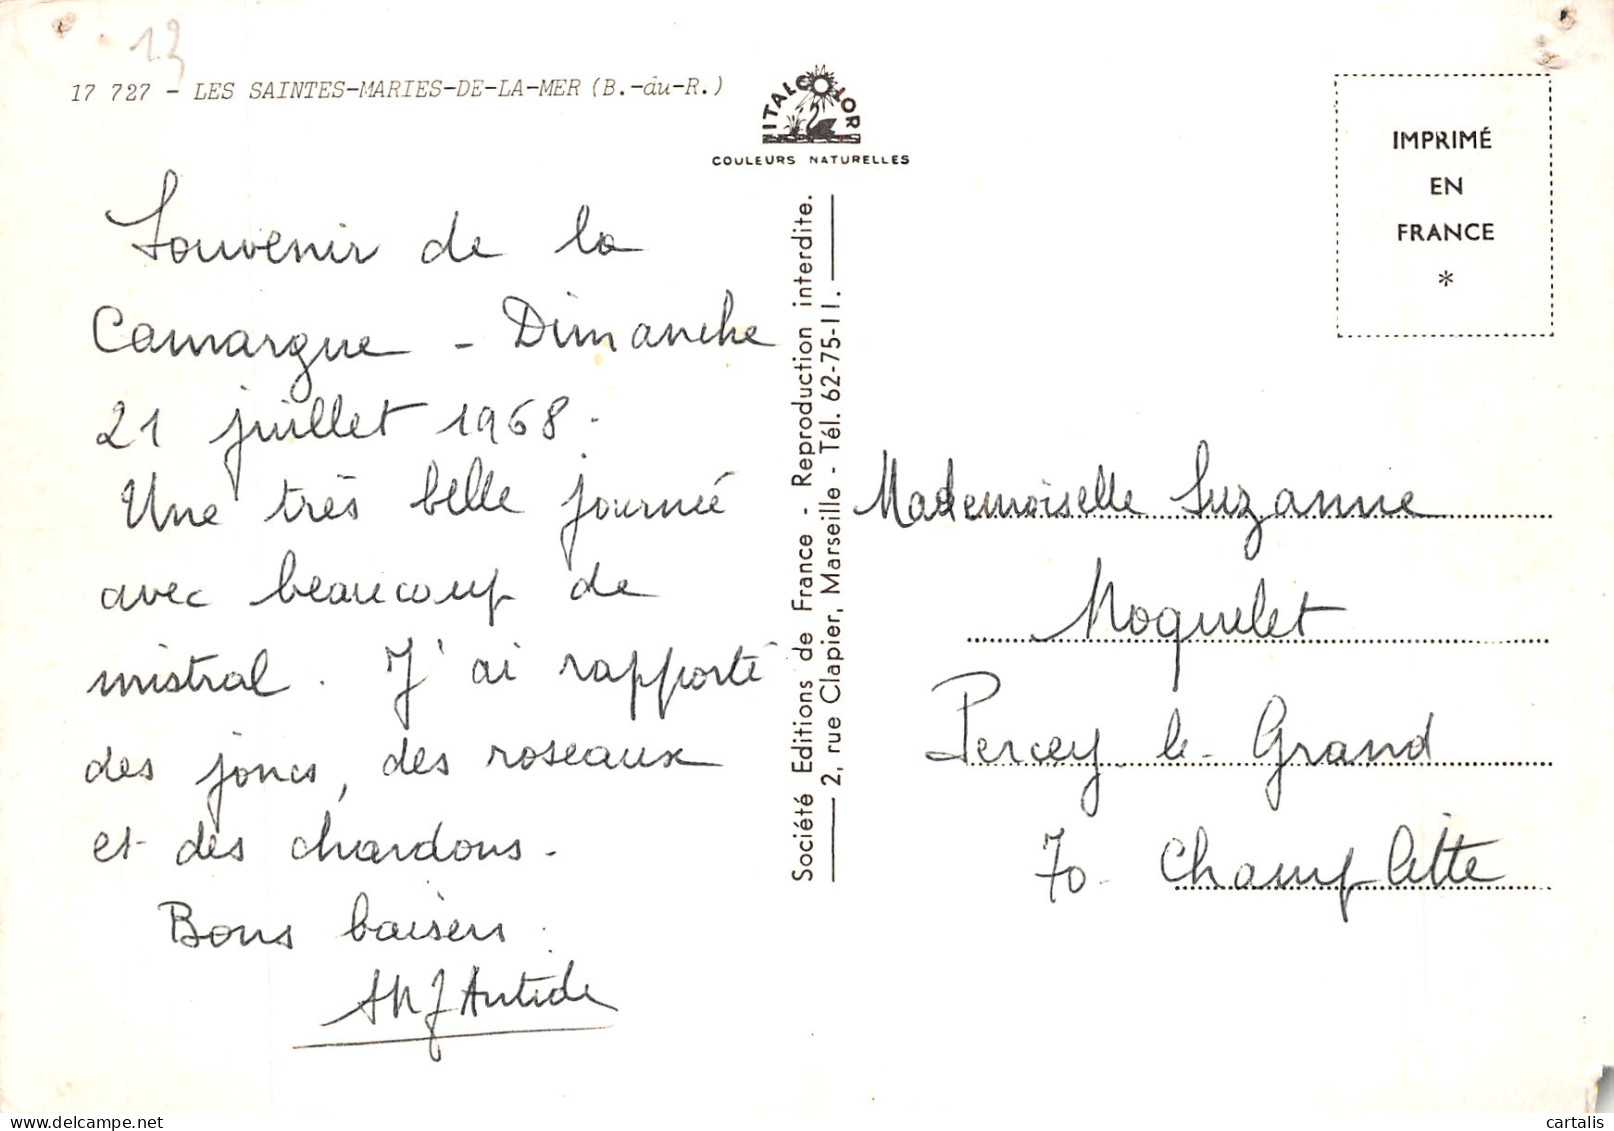 13
17 727 - LES SAINTES-MARIES-DE-LA-MER (B.-du-R.)
ITALCOLOR
COULEURS NATURELLES
IMPRIMÉ
EN
FRANCE
*
Souvenir de la
Camargue - Dimanche
21 juillet 1968.
Une très belle journée
avec beaucoup de
mistral. J'ai rapporté
des joncs, des roseaux
et des chardons.
Bons baisers.
Antide
Société Editions de France - Reproduction interdite.
2, rue Clapier, Marseille - Tél. 62-75-11.
Mademoiselle Suzanne
Noquelet
Percey-le-Grand
70 - Champlitte
cartalis